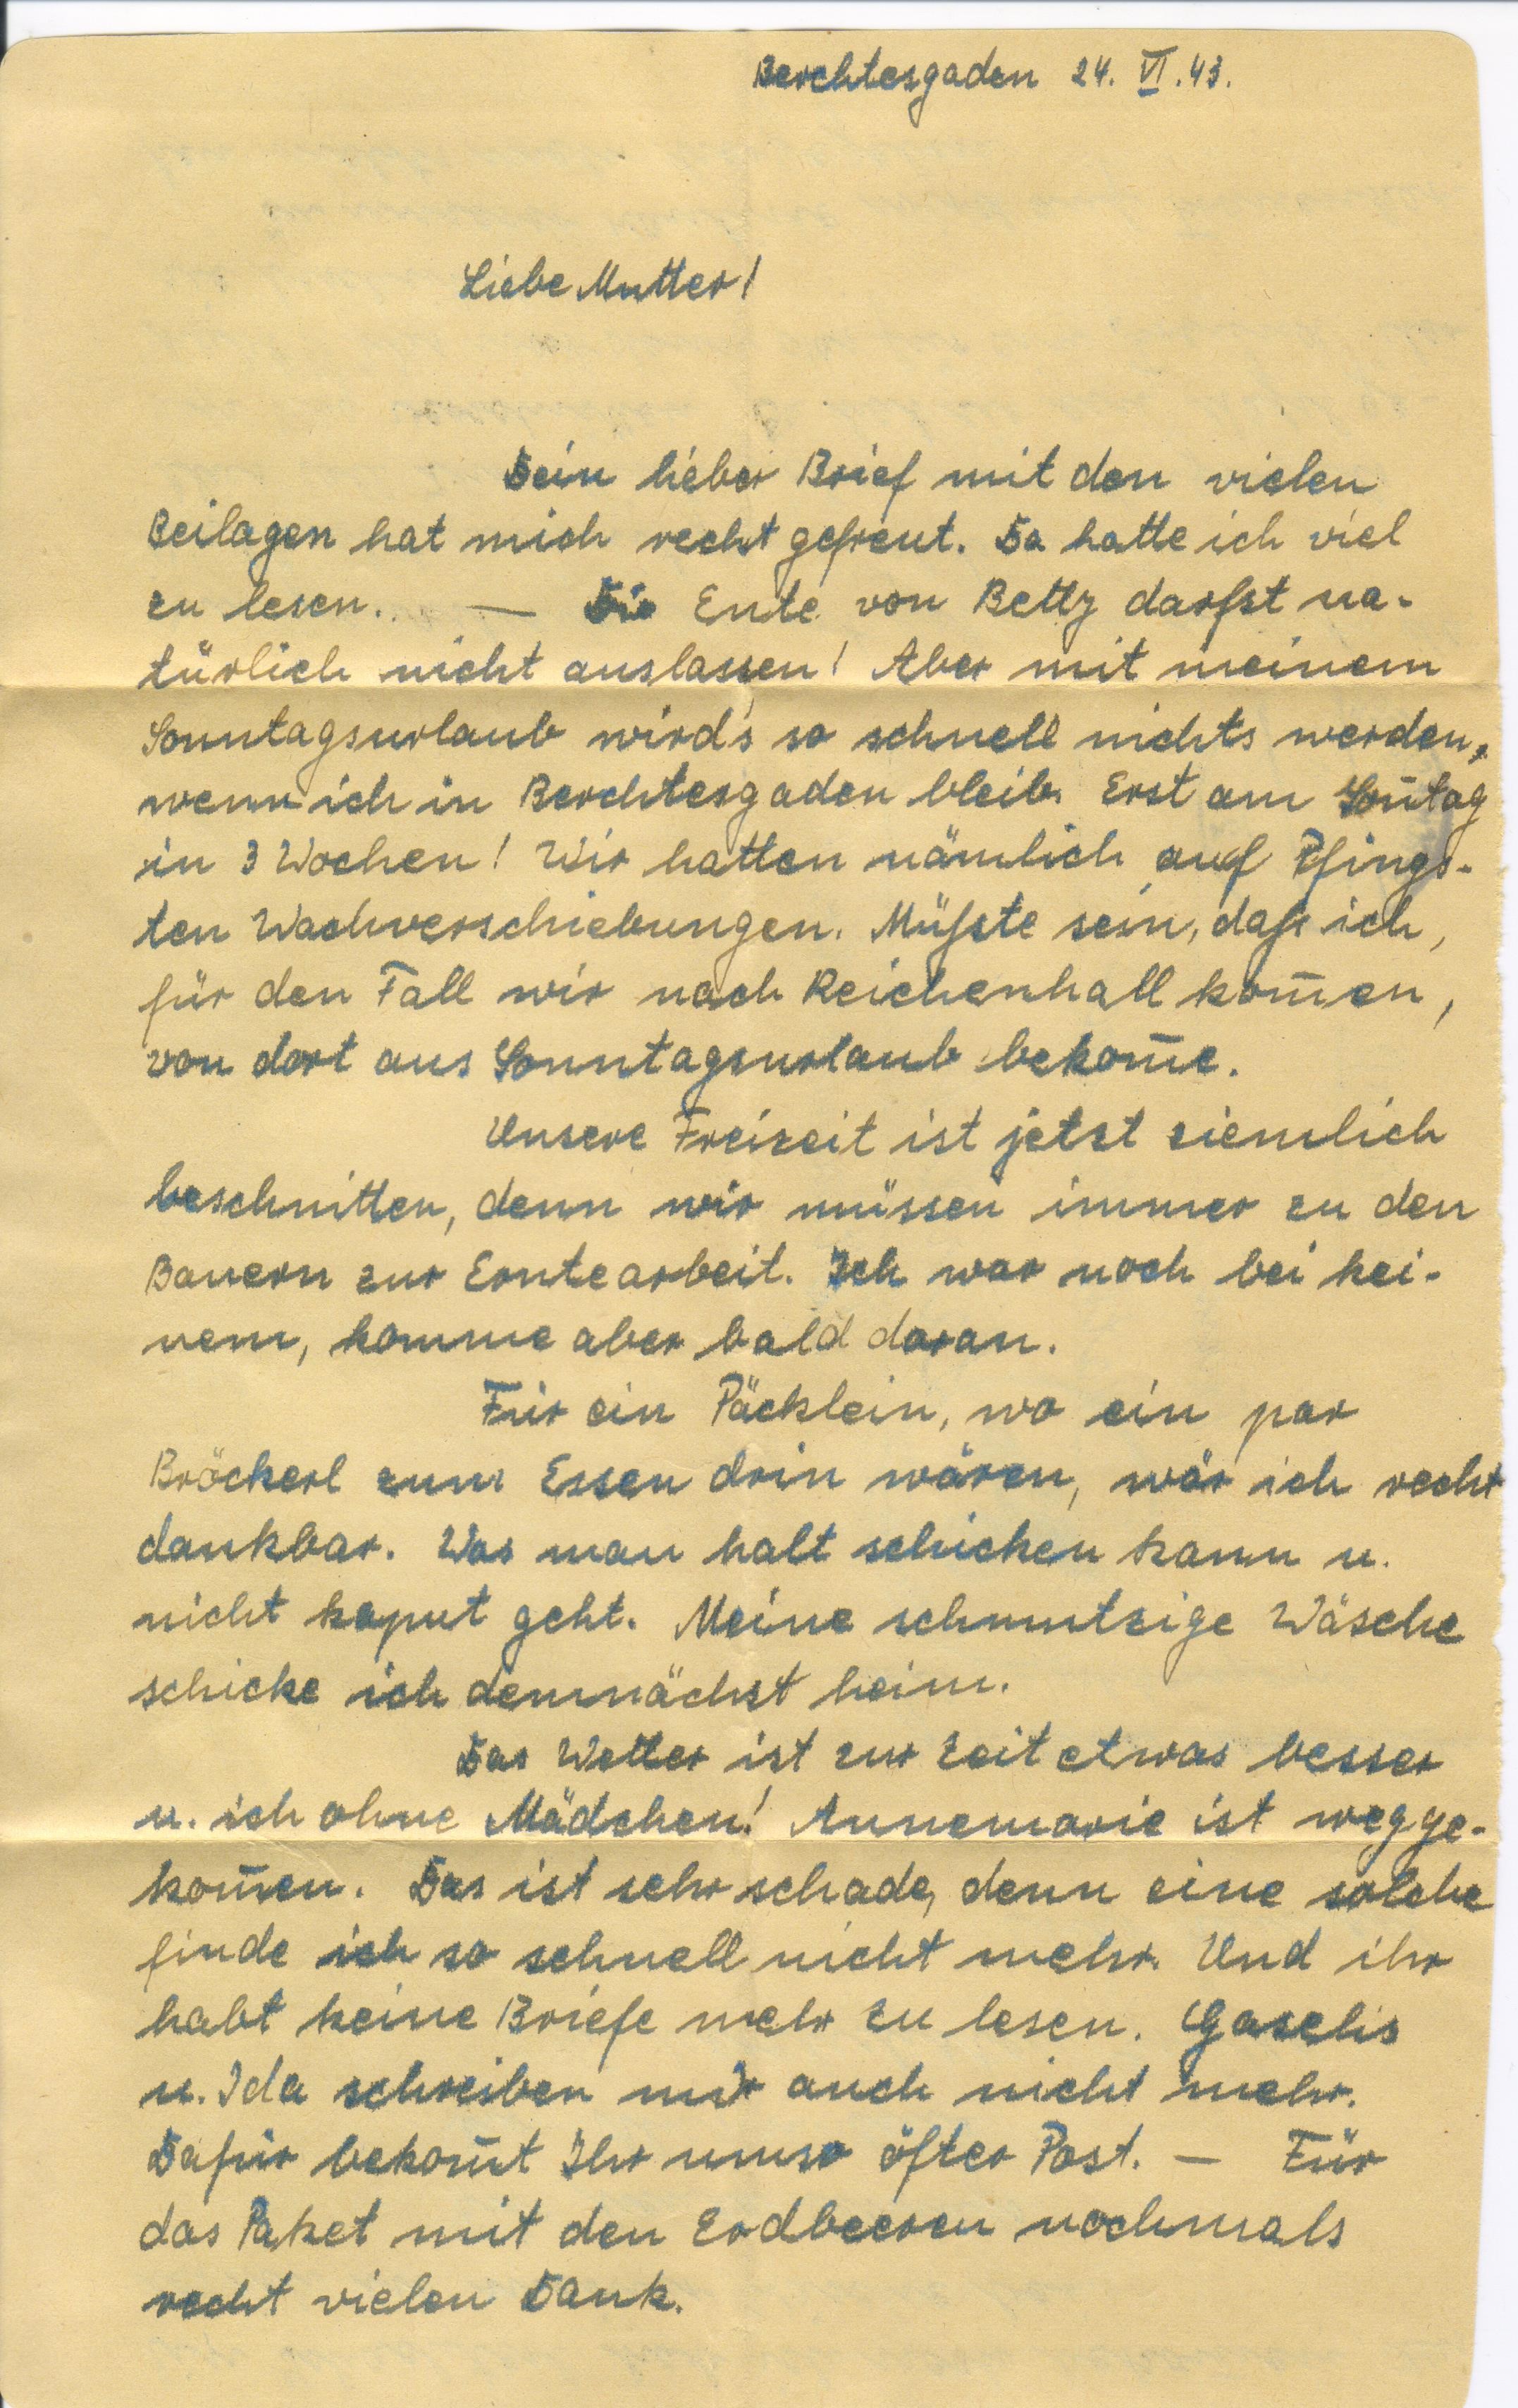 Berchtesgaden 24. VI. 43.
Liebe Mutter!
Dein lieber Brief mit den vielen
Beilagen hat mich recht gefreut. Da hatte ich viel
zu lesen. — Die Ente von Betty darfst na-
türlich nicht auslassen! Aber mit meinem
Sonntagsurlaub wird's so schnell nichts werden,
wenn ich in Berchtesgaden bleib. Erst am Son̄tag
in 3 Wochen! Wir hatten nämlich auf Pfings-
ten Wachverschiebungen. Müßte sein, daß ich,
für den Fall wir nach Reichenhall kom̄en,
von dort aus Sonntagsurlaub bekom̄e.
Unsere Freizeit ist jetzt ziemlich
beschnitten, denn wir müssen immer zu den
Bauern zur Erntearbeit. Ich war noch bei kei-
nem, komme aber bald daran.
Für ein Päcklein, wo ein par
Bröckerl zum Essen drin wären, wär ich recht
dankbar. Was man halt schicken kann u.
nicht kaput geht. Meine schmutzige Wäsche
schicke ich demnächst heim.
Das Wetter ist zur Zeit etwas besser
u. ich ohne Mädchen! Annemarie ist wegge-
kom̄en. Das ist sehr schade, denn eine solche
finde ich so schnell nicht mehr. Und ihr
habt keine Briefe mehr zu lesen.
u. Ida schreiben mir auch nicht mehr.
Dafür bekom̄t Ihr umso öfter Post. — Für
das Paket mit den Erdbeeren nochmals
recht vielen Dank.